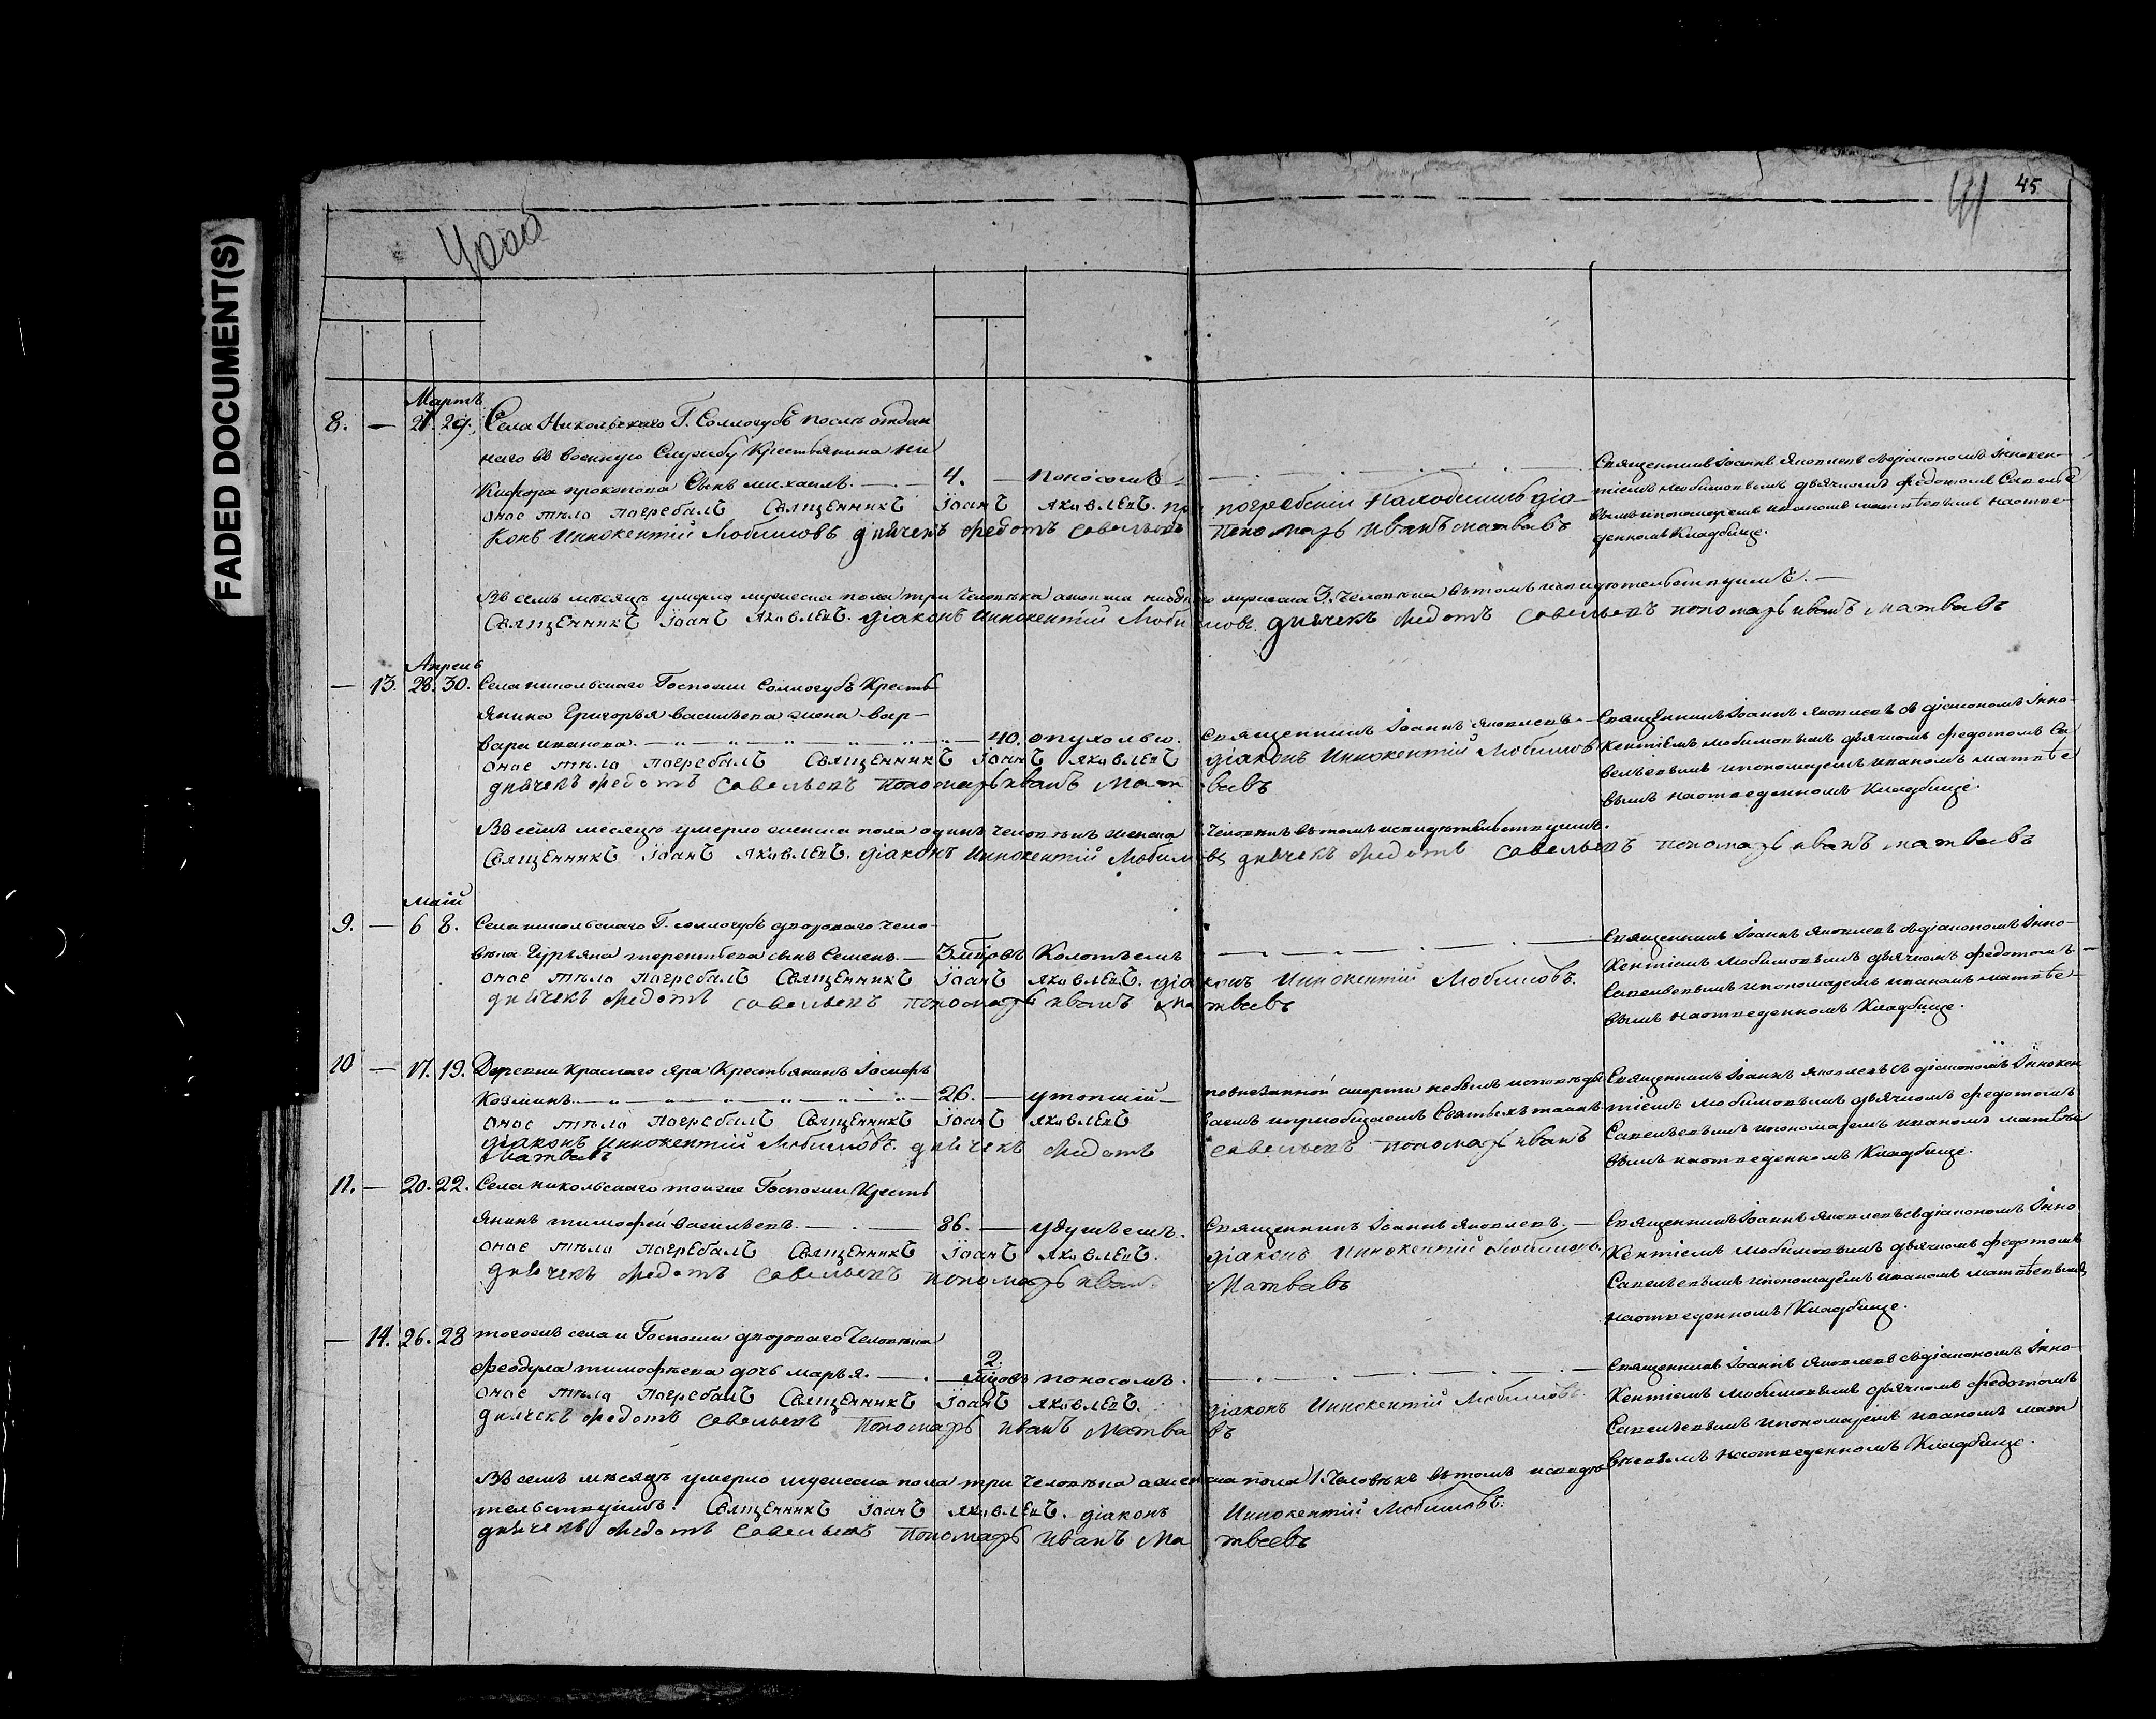 FADED DOCUMENT(S)
45
Мартъ
8. — 21. 29. Села Никольскаго Г. Соллогубъ послѣ отдан
наго въ военную Службу Крестьянина Ни
кифора прокопова Сынъ михаилъ. — 4. — поносомъ
оное тѣло погребалъ Священникъ Іоаннъ Яковлевъ. при погребеніи Находились діа-
конъ Иннокентій Любимовъ дьячекъ Федотъ Савельевъ Пономарь иванъ матвѣвъ
Священникъ Іоаннъ Яковлевъ съ діакономъ Іннокен-
тіемъ любимовымъ дьячкомъ федотомъ Савелье
вымъ и пономаремъ иваномъ матвѣевымъ на отве-
денномъ Кладбище.
Въ семъ мѣсяцѣ умерло мужеска пола три человѣка
Священникъ Іоаннъ Яковлевъ. діаконъ Иннокентій Любимовъ. дьячекъ Федотъ Савельевъ пономарь иванъ матвѣвъ
Апрель
— 13. 28. 30. Села никольскаго Госпожи Соллогубъ Кресть
янина Григорья васильева жена вар-
вара иванова. — 40. опухолью.
Священникъ Іоаннъ Яковлевъ. —
оное тѣло погребалъ Священникъ Іоаннъ Яковлевъ діаконъ Иннокентій Любимовъ
дьячекъ Федотъ Савельевъ пономарь иванъ Матвеевъ
Священникъ Іоаннъ Яковлевъ съ діакономъ Інно-
кентіемъ любимовымъ дьячкомъ федотомъ Са
вельевымъ и пономаремъ иваномъ матвѣе
вымъ на отведенномъ Кладбище.
Въ семъ месяцѣ умерло женска пола одинъ человѣкъ
Священникъ Іоаннъ Яковлевъ. діаконъ Иннокентій Любимовъ дьячекъ Федотъ Савельевъ пономарь иванъ матвеевъ
Маій
9. — 6 8. Села никольскаго Г. соллогубъ двороваго чело-
вѣка Гурьяна терентьева сынъ Семенъ. — 3 м͠цовъ Колотьемъ
оное тѣло погребалъ Священникъ Іоаннъ Яковлевъ. діаконъ Иннокентій Любимовъ.
дьячекъ Федотъ Савельевъ пономарь иванъ Матвеевъ
Священникъ Іоаннъ Яковлевъ съ діакономъ Інно-
кентіемъ любимовымъ дьячкомъ федотомъ —
Савельевымъ и пономаремъ иваномъ матвѣе-
вымъ на отведенномъ Кладбище.
10 — 17. 19. Деревни Краснаго Яра Крестьянинъ Іосифъ
Козминъ. — 26. — утопшій —
по внезапной смерти небылъ исповѣды
ваемъ и пріобщаемъ Святыхъ таинъ
оное тѣло погребалъ Священникъ Іоаннъ Яковлевъ
діаконъ Иннокентій Любимовъ. дьячекъ Федотъ Савельевъ пономарь иванъ
Матвеевъ
Священникъ Іоаннъ Яковлевъ съ діакономъ Іннокен
тіемъ любимовымъ дьячкомъ федотомъ
Савельевымъ и пономаремъ иваномъ матвѣе
вымъ на отведенномъ Кладбище.
11. — 20. 22. Села никольскаго тойже Госпожи Кресть
янинъ тимофей васильевъ. — 86. — удушьемъ.
Священникъ Іоаннъ Яковлевъ. —
оное тѣло погребалъ Священникъ Іоаннъ Яковлевъ. діаконъ Иннокентій Любимовъ.
дьячекъ Федотъ Савельевъ пономарь иванъ Матвавъ
Священникъ Іоаннъ Яковлевъ съ діакономъ Інно
кентіемъ любимовымъ дьячкомъ федотомъ
Савельевымъ и пономаремъ иваномъ матвѣевымъ
на отведенномъ Кладбище.
— 14. 26. 28 тогожъ села и Госпожи двороваго Человѣка
феодула тимофѣева дочь марья. — 2. м͠цовъ поносомъ.
оное тѣло погребалъ Священникъ Іоаннъ Яковлевъ. діаконъ Иннокентій Любимовъ.
дьячекъ Федотъ Савельевъ Пономарь иванъ Матвавъ
Священникъ Іоаннъ Яковлевъ съ діакономъ Інно-
кентіемъ любимовымъ дьячкомъ федотомъ
Савельевымъ и пономаремъ иваномъ мат
вѣевымъ на отведенномъ Кладбище.
Въ семъ мѣсяцѣ умерло мужеска пола три человѣка а женска пола 1. Человѣкъ въ томъ и свидѣ
тельствуимъ. Священникъ Іоаннъ Яковлевъ. діаконъ Иннокентій Любимовъ.
дьячекъ Федотъ Савельевъ Пономарь иванъ Матвеевъ